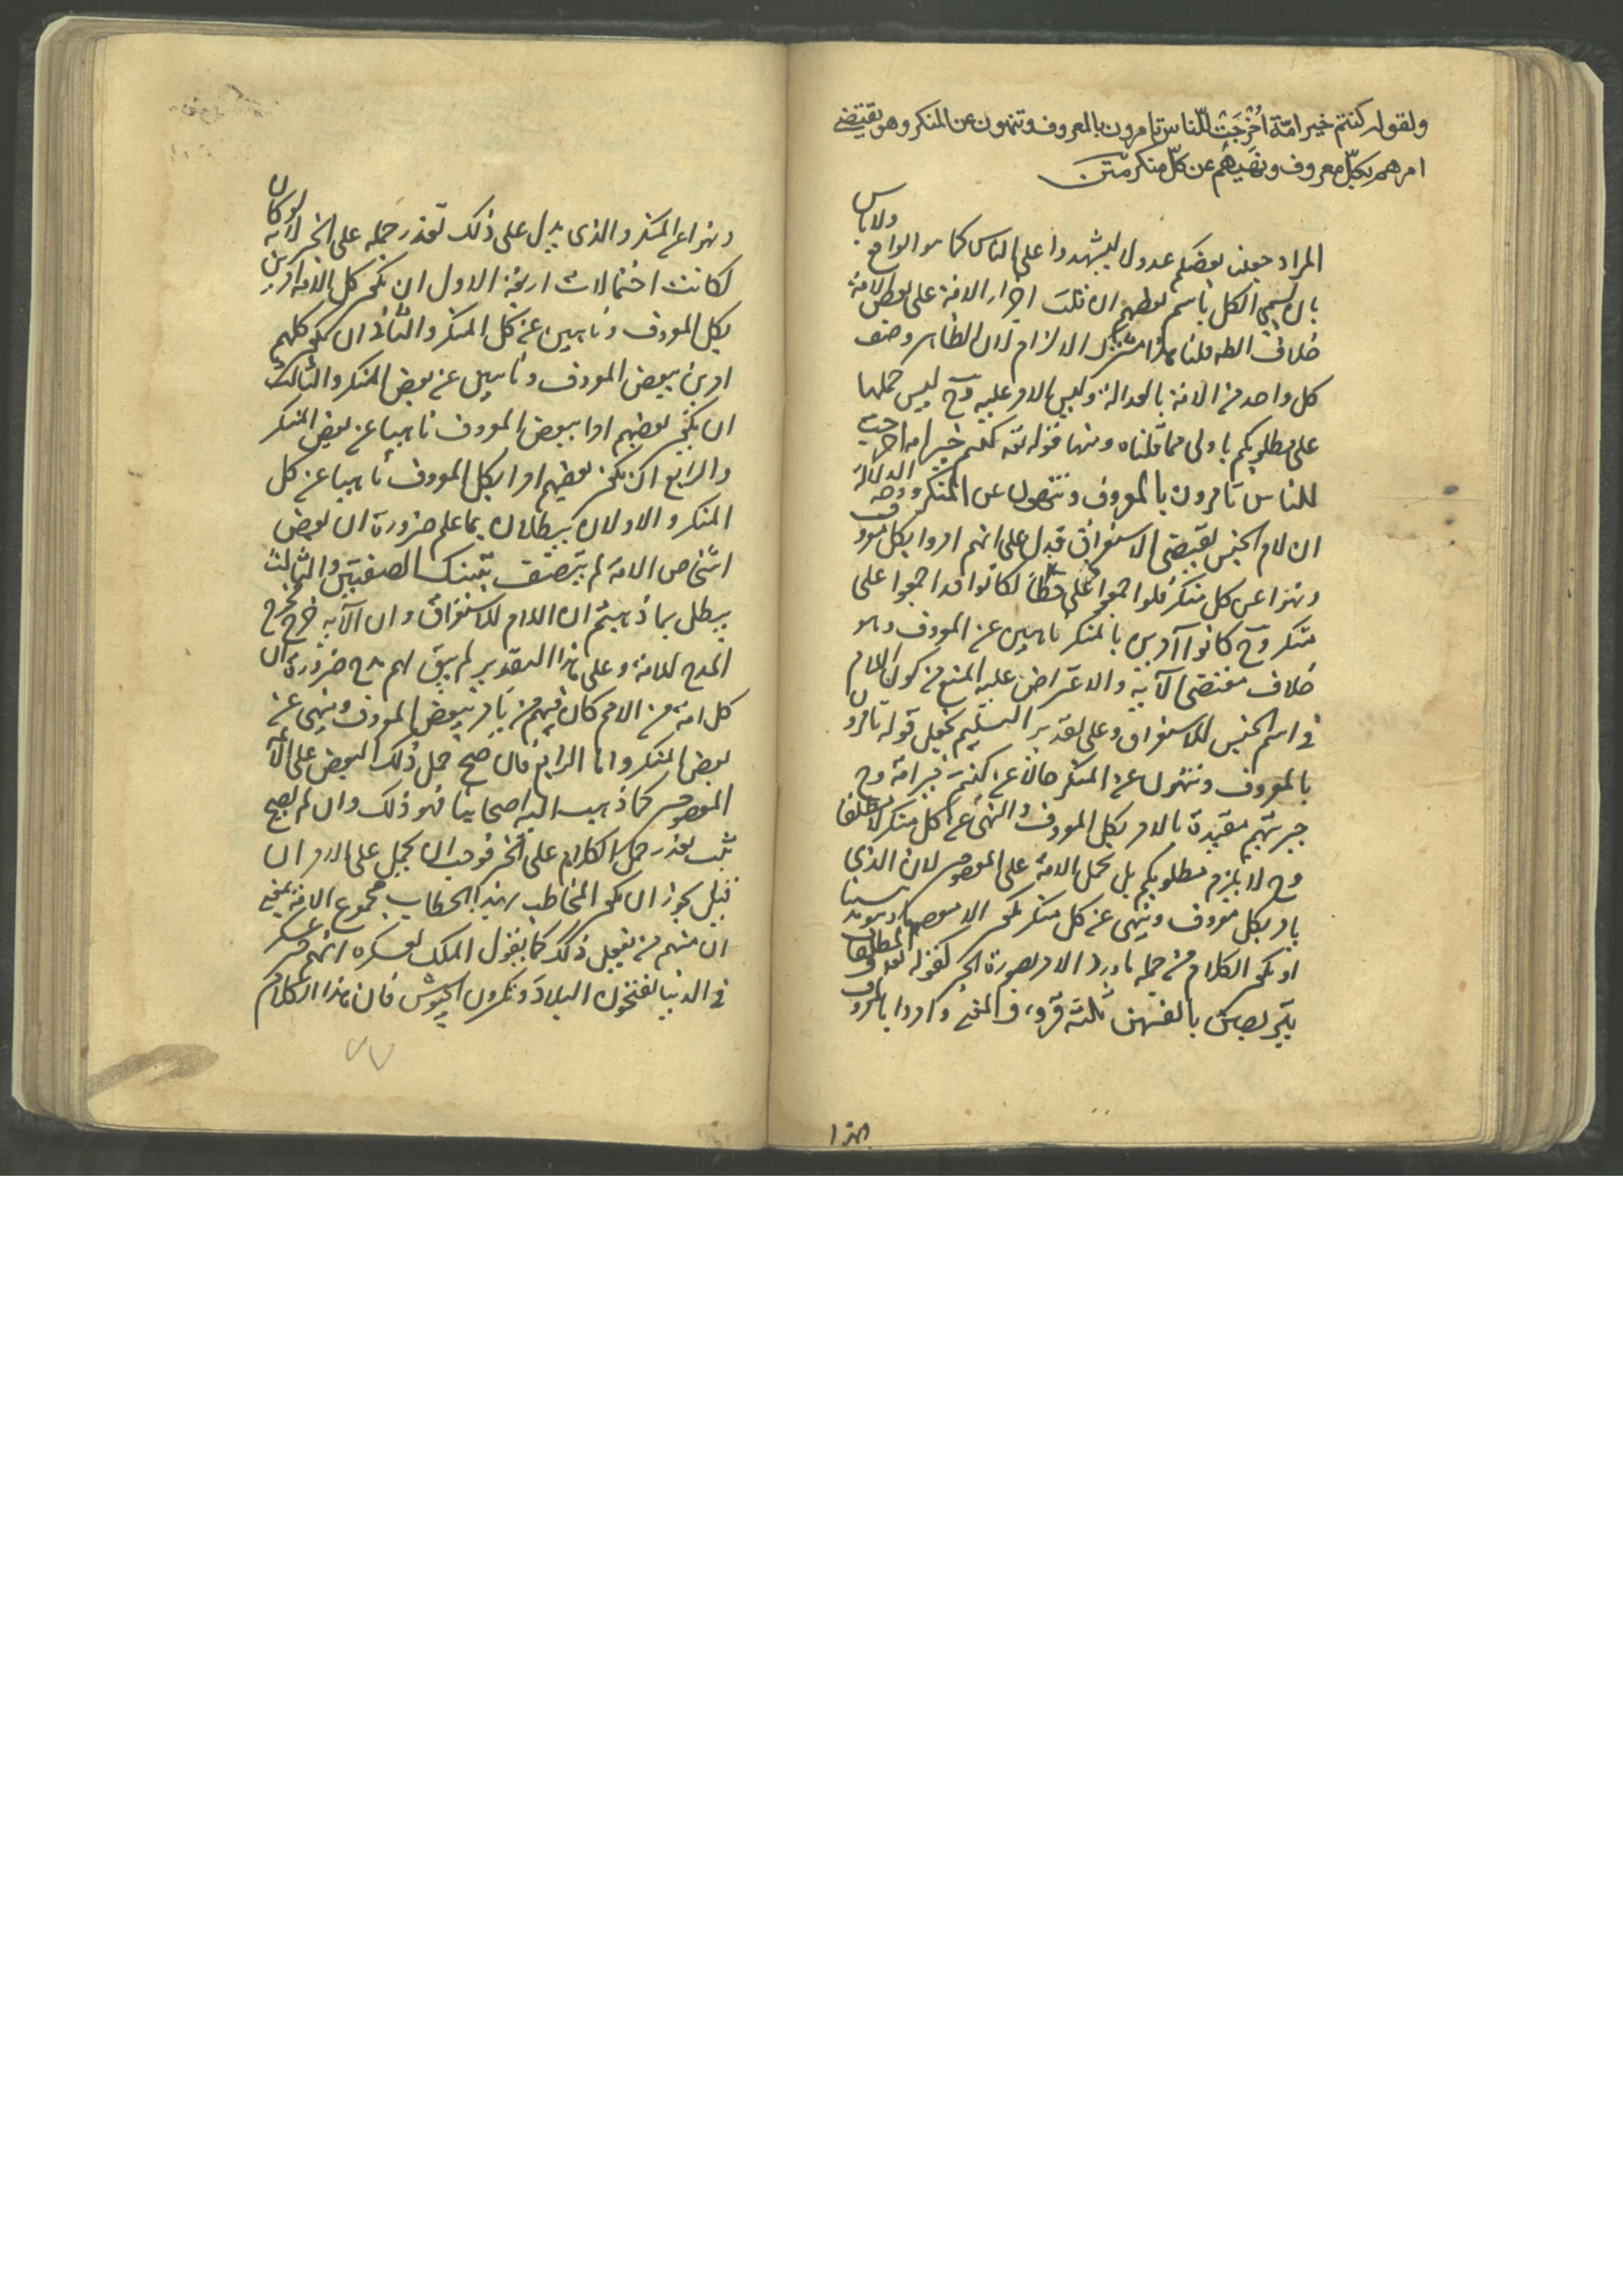 ولقوله كنتم خير امّة اُخْرِجَتْ للنّاس تامرون بالمعروف وتنهون عن المنكر وهو يقتضى
امرهم بكلّ معروف ونَهْيَهُم عن كلّ منكر متن
المراد جعلنا بعضكم عدولا ليشهدوا على الناس كما هو الواقع ولا باس
بان يسمى الكل باسم بعضهم ان قلت اجراء الامة على بعض الامة
خلاف الظه قلنا هذا مشترك الالزام لان الظاهر وصف
كل واحد من الامة بالعدالة وليس الامر عليه وح ليس حملها
على مطلوبكم باولى مما قلناه ومنها قوله تعه كنتم خير امة اخرجت
للناس تامرون بالمعروف وتنهون عن المنكر ووجه الدلالة
ان لام الجنس يقتضى الاستغراق فيدل على انهم امروا بكل معروف
ونهوا عن كل منكر فلو اجمعوا على خطأ لكانوا قد اجمعوا على
منكر وح كانوا آمرين بالمنكر ناهين عن المعروف وهو
خلاف مقتضى الآية والاعتراض عليه المنع من كون اللام
فى اسم الجنس للاستغراق وعلى تقدير التسليم نجعل قوله تامرون
بالمعروف وتنهون عن المنكر حالا عن كنتم خير امة وح
خيريتهم مقيدة بالامر بكل المعروف والنهى عن كل منكر لا مطلقا
وح لا يلزم مطلوبكم بل نحمل الامة على المعصوم لان الذى
يامر بكل معروف وينهى عن كل منكر
او يكون الكلام من جملة ما ورد الامر بصورة الخبر كقوله تعه والمطلقات
يتربصن بانفسهن ثلثة قروء والمعنى وامروا بالمعروف
وانهوا عن المنكر والذى يدل على ذلك تعذر حمله على الخبر لانه لو كان
لكانت احتمالات اربعة الاول ان يكون كل الامة آمرين
بكل المعروف وناهين عن كل المنكر والثانى ان يكون كلهم
امرين ببعض المعروف وناهين عن بعض المنكر والثالث
ان يكون بعضهم امرا ببعض المعروف ناهيا عن بعض المنكر
والرابع ان يكون بعضهم امرا بكل المعروف ناهيا عن كل
المنكر والاولان يبطلان بما علم ضرورة ان بعض
اشخاص الامة لم يتصف بتينك الصفتين والثالث
يبطل بما ذهبتم ان اللام للاستغراق وان الآية خرج مخرج
المدح للامة وعلى هذا التقدير لم يبق لهم مدح ضرورة ان
كل امة من الامم كان فيهم من يامر ببعض المعروف وينهى عن
بعض المنكر واما الرابع فان صح حمل ذلك البعض على الامام
المعصوم كما ذهب اليه اصحابنا فهو ذلك وان لم يصح
ثبت تعذر حمل الكلام على الخبر فوجب ان يحمل على الامر ان
قيل يجوز ان يكون المخاطب بهذا الخطاب مجموع الامة بمعنى
ان منهم من يفعل ذلك كما يقول الملك لعسكره انتم خير عسكر
فى الدنيا تفتحون البلاد وتكسرون الجيوش فان هذا الكلام